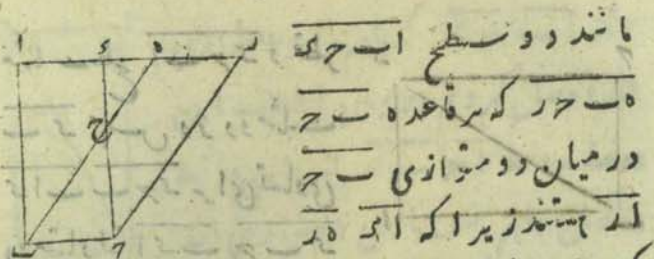 مانند دو سطح ا ب ح د
ه ب ح ر که بر قاعده ب ح
در میان دو متوازی ب ح
ا ر هستند زیرا که ا د ه ر
ا د ه ر
ح
ب ح